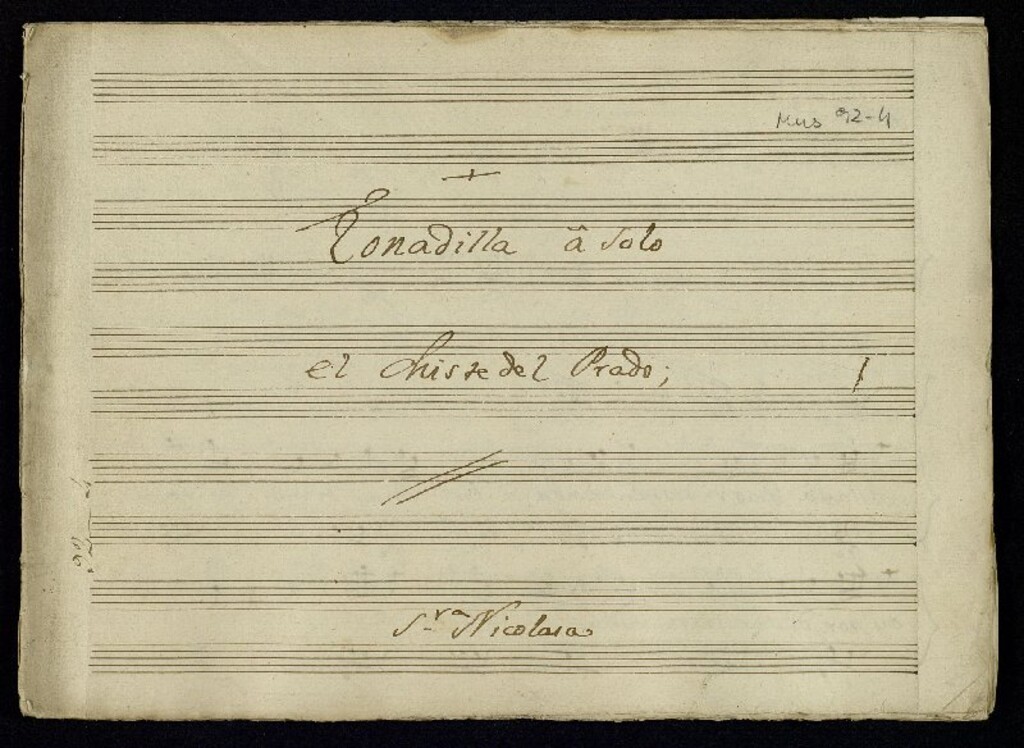 Mus 92-4
Tonadilla â Solo
el Chiste del Prado;
1
S.ra Nicolasa